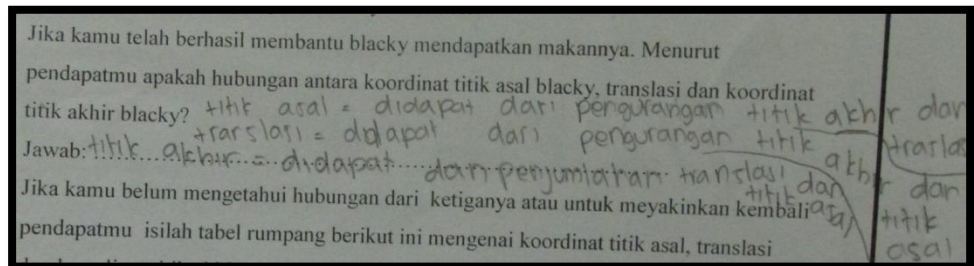 Jika kamu telah berhasil membantu blacky mendapatkan makannya. Menurut
pendapatmu apakah hubungan antara koordinat titik asal blacky, translasi dan koordinat
titik akhir blacky? titik asal = didapat dari pengurangan titik akhir dan translasi
translasi = didapat dari pengurangan titik akhir dan titik asal
Jawab: titik akhir = didapat dari penjumlahan translasi dan titik asal
Jika kamu belum mengetahui hubungan dari ketiganya atau untuk meyakinkan kembali
pendapatmu isilah tabel rumpang berikut ini mengenai koordinat titik asal, translasi